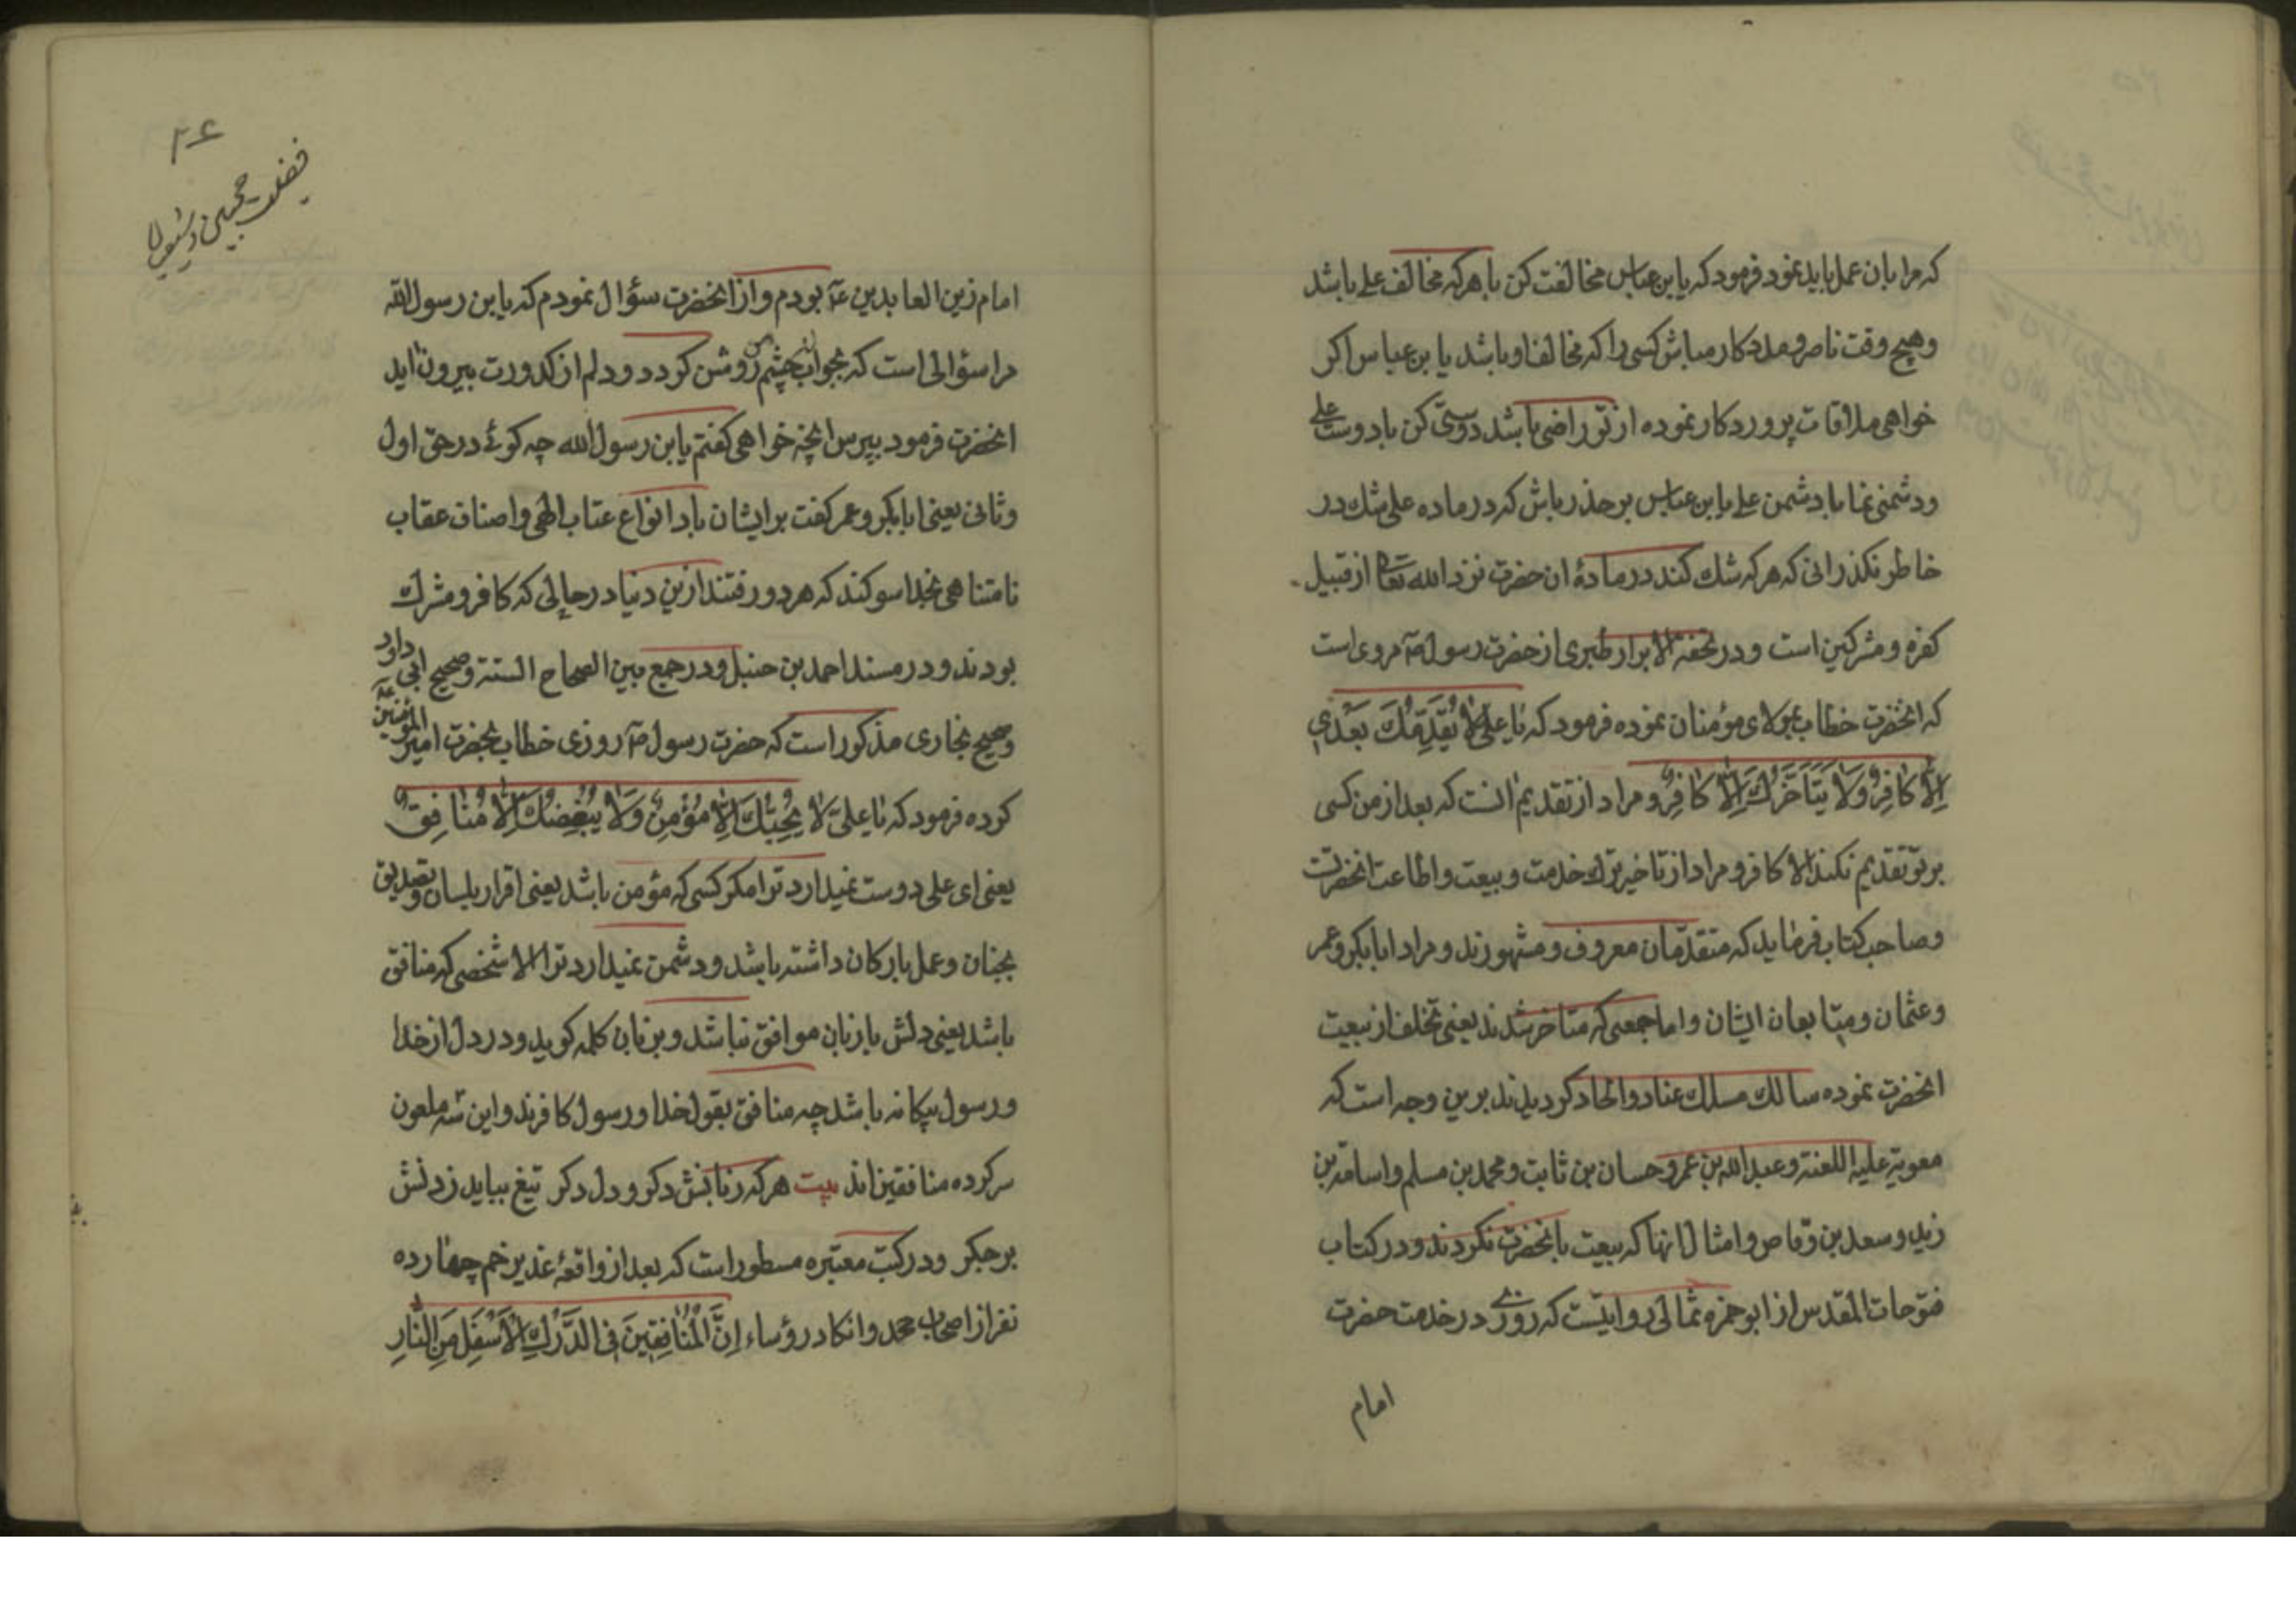 که مرا بان عمل باید نمود فرمود که یا بن عباس مخالفت کن با هرکه مخالف علی باشد
وهیچ وقت ناصر و مددکار مباش کسی را که مخالف او باشد یا بن عباس اکر
خواهی ملاقات پروردکار نموده از تو راضی باشد دوستی کن با دوست علی
ودشمنی نما با دشمن علی یا بن عباس بر حذر باش که در ماده علی شک در
خاطر نکذرانی که هرکه شک کند در مادهٔ ان حضرت نزد الله تعالی از قبیل
کفره و مشرکین است و در تحفة الابرار طبری از حضرت رسول ص مروی است
که انحضرت خطاب بمولای مؤمنان نموده فرمود که یَا عَلیُّ لَا یُقَدِّمُكَ بَعْدی
اِلَّا کَافِرٌ وَلَا یَتَأَخَّرُكَ اِلَّا کَافِرٌ و مراد از تقدیم انست که بعد از من کسی
بر تو تقدیم نکند الا کافر و مراد از تاخیر ترك خدمت و بیعت و اطاعت انحضرتست
وصاحب کتاب فرماید که متقدّمان معروف و مشهورند و مراد ابابکر و عمر
وعثمان و متابعان ایشان و اما جمعی که متاخر شدند یعنی تخلف از بیعت
انحضرت نموده سالك مسلك عناد و الحاد کردیدند برین وجه است که
معویة علیه اللعنة و عبدالله بن عمر و حسان بن ثابت و محمد بن مسلم و اسامة بن
زید و سعد بن وقاص و امثال انها که بیعت بانحضرت نکردند و در کتاب
فتوحات القدس از ابو حمزه ثمالی روایتست که روزی در خدمت حضرت
امام
۲۶
فضیلت محبین و شیعیان
امام زین العابدین ع بودم و از انحضرت سؤال نمودم که یا بن رسول الله
مرا سؤالی است که بجواب ان چشم من روشن کردد و دلم از کدورت بیرون اید
انحضرت فرمود بپرس انچه خواهی کفتم یا بن رسول الله چه کوئے در حق اول
وثانی یعنی ابابکر و عمر کفت بر ایشان باد انواع عتاب الهی و اصناف عقاب
نامتناهی بخدا سوکند که هر دو رفتند ازین دنیا در حالی که کافر و مشرك
بودند و در مسند احمد بن حنبل و در جمع بین الصحاح الستة و صحیح ابی داود
وصحیح بخاری مذکور است که حضرت رسول ص روزی خطاب بحضرت امیر المؤمنین ع
کرده فرمود که یَا عَلیُّ لَا یُحِبُّكَ اِلَّا مُؤْمِنٌ وَلَا یُبْغِضُكَ اِلَّا مُنَافِقٌ
یعنی ای علی دوست نمیدارد ترا مکر کسی که مؤمن باشد یعنی اقرار بلسان و تصدیق
بجنان و عمل بارکان داشته باشد و دشمن نمیدارد ترا الا شخصی که منافق
باشد یعنی دلش با زبان موافق نباشد و بزبان کلمه کوید و در دل از خدا
ورسول بیکانه باشد چه منافق بقول خدا و رسول کافرند و این سه ملعون
سرکرده منافقین اند بیت هرکه زبانش دکر و دل دکر تیغ بباید زدنش
برجکر ودر کتب معتبره مسطور است که بعد از واقعهٔ غدیر خم چهارده
نفر از اصحاب محمد و انکاد رؤساء اِنَّ الْمُنَافِقِینَ فِی الدَّرْكِ الْأَسْفَلِ مِنَ النَّارِ